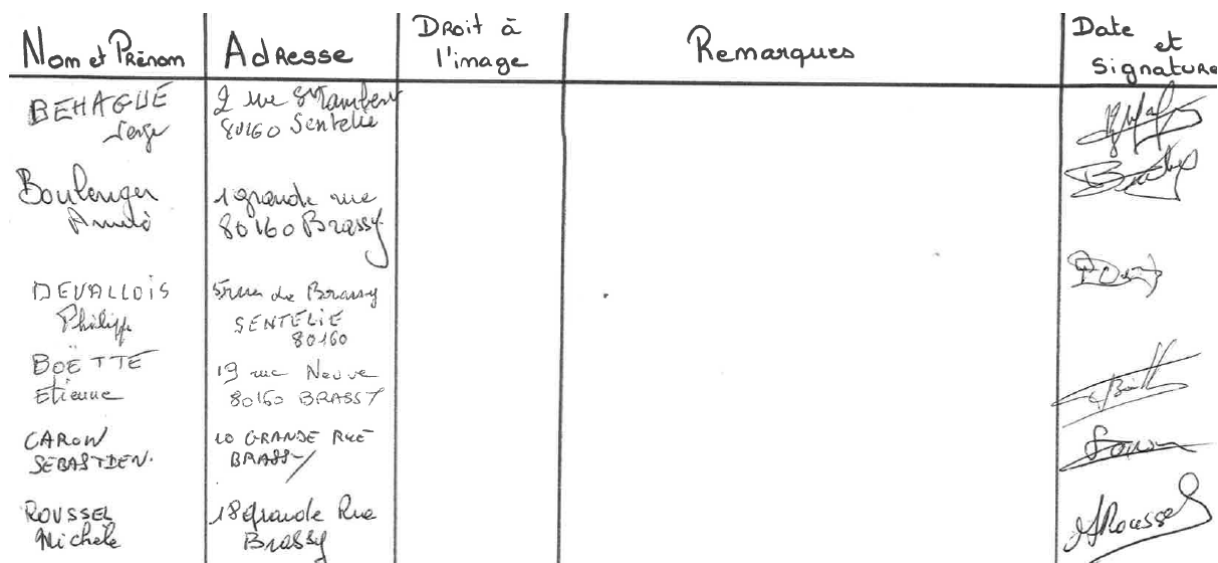 Nom et Prénom
Adresse
Droit à
l'image
Remarques
Date
et
Signature
BEHAGUE
Serge
2 rue St
80160 Sentelie
Boulenger
1 grande rue
80160 Brassy
DEVALLOIS
Philippe
5 rue de Brassy
SENTELIE
80160
BOËTTE
Etienne
19 rue Neuve
80160 BRASSY
CARON
SEBASTIEN.
10 GRANDE RUE
BRASSY
ROUSSEL
Michèle
18 grande Rue
Brassy
MRoussel